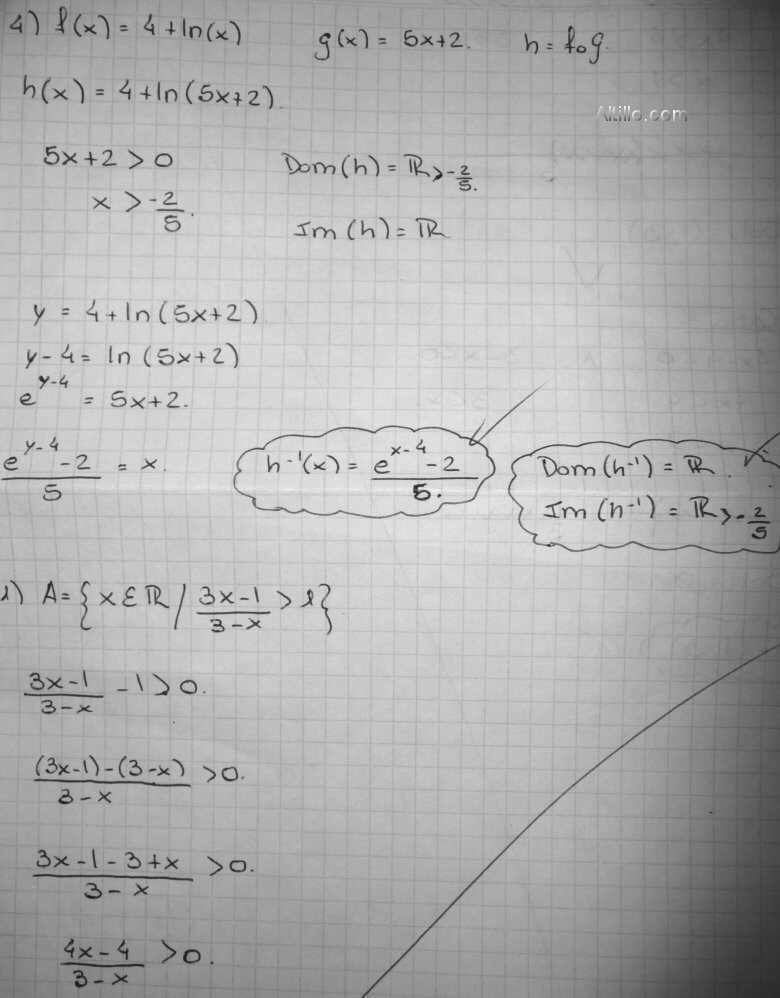 4) f(x) = 4 + ln(x)   g(x) = 5x+2.   h = fog.
h(x) = 4+ln(5x+2).
Altillo.com
5x+2 > 0   Dom(h) = ℝ>-2/5.
x > -2/5.
Im(h) = ℝ
y = 4+ln(5x+2)
y-4 = ln(5x+2)
e^(y-4) = 5x+2.
(e^(y-4) -2)/5 = x.   h⁻¹(x) = (e^(x-4) -2)/5.   Dom(h⁻¹) = ℝ.
Im(h⁻¹) = ℝ>-2/5
1) A = {x ε ℝ / (3x-1)/(3-x) > 1}
(3x-1)/(3-x) -1 > 0.
((3x-1)-(3-x))/(3-x) > 0.
(3x-1-3+x)/(3-x) > 0.
(4x-4)/(3-x) > 0.